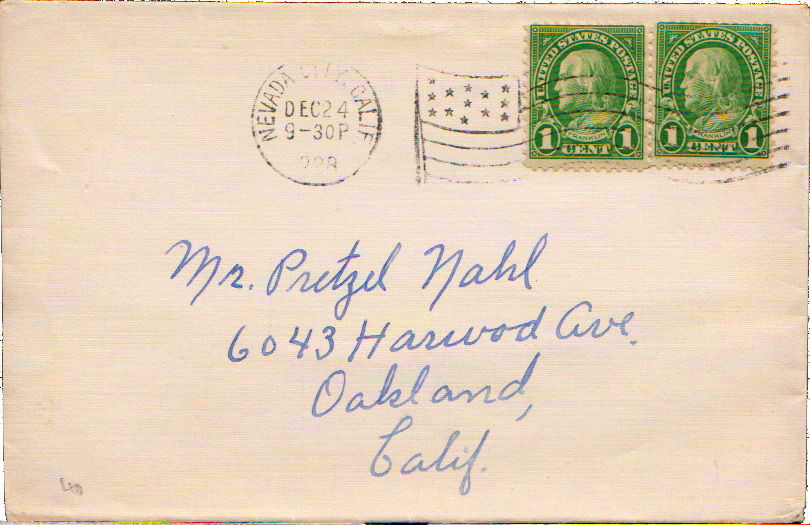 NEVADA CITY, CALIF
DEC 24
9-30P
UNITED STATES POSTAGE
FRANKLIN
1 CENT 1
UNITED STATES POSTAGE
FRANKLIN
1 CENT 1
Mr. Pretzel Nahl
6043 Harwood Ave.
Oakland,
Calif.
40